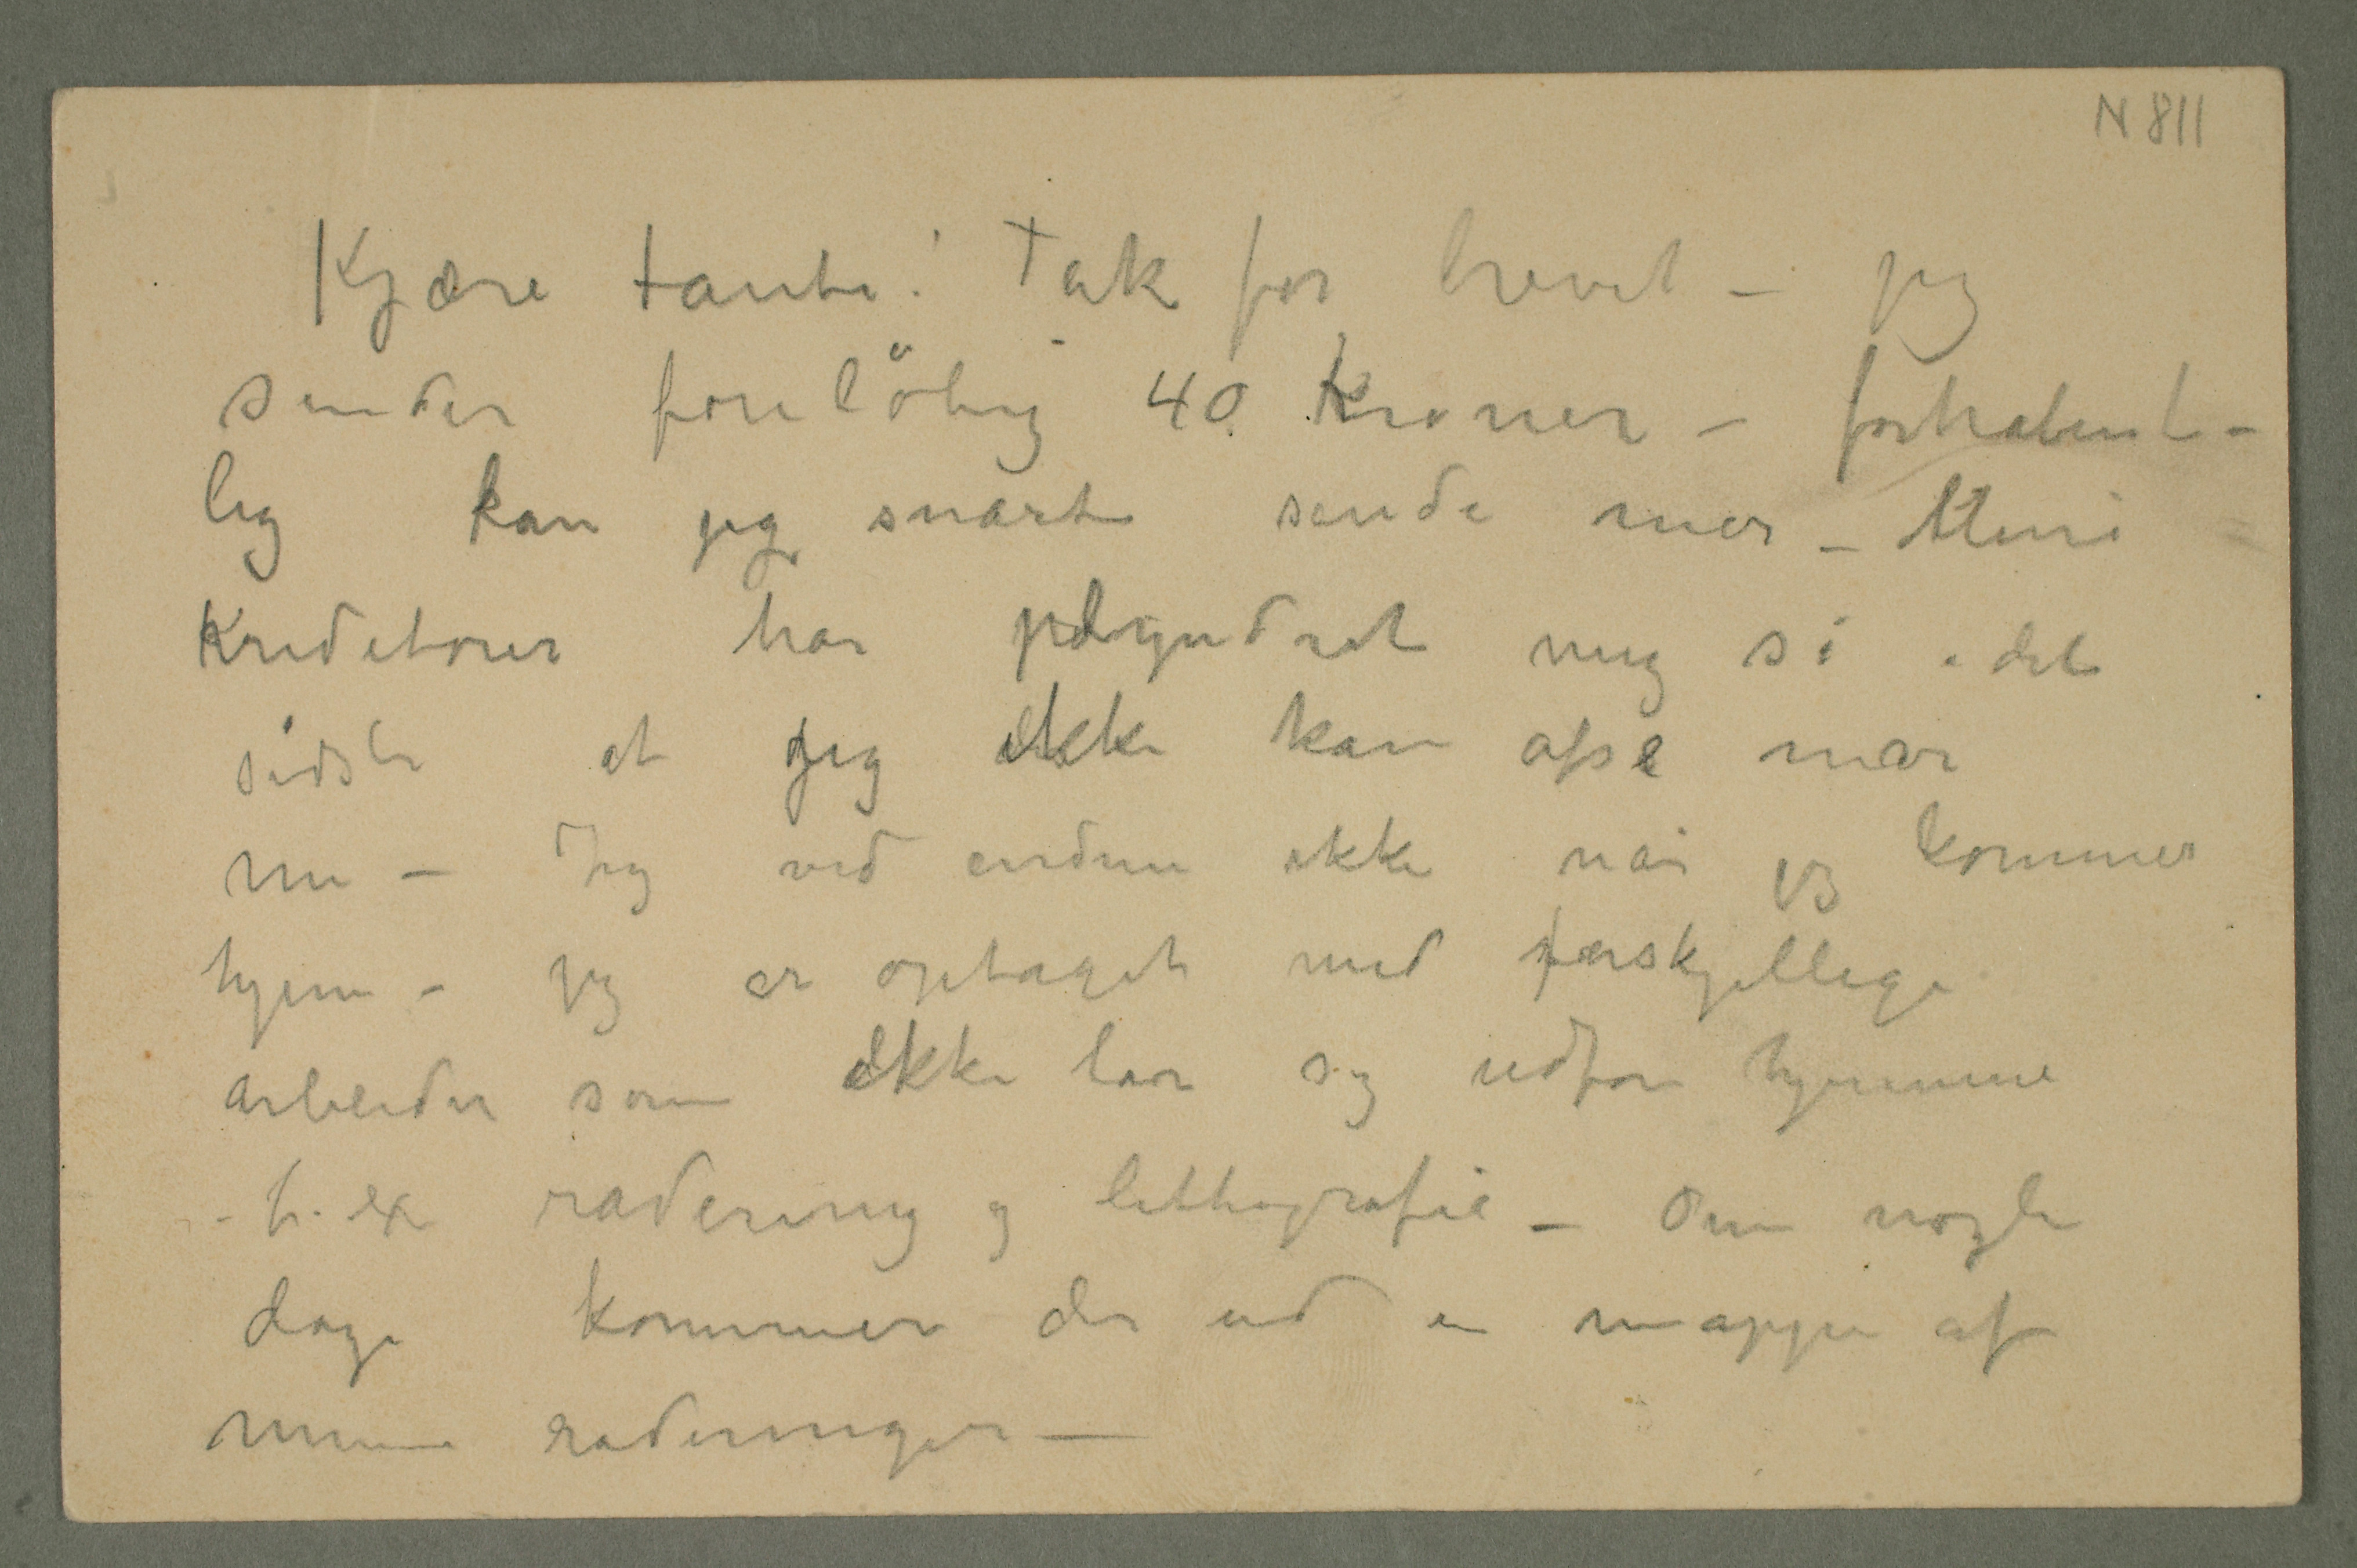 N 811
Kjære tante! Tak for brevet – jeg
sender foreløbig 40 Kroner – forhåbent-
lig kan jeg snart sende mer – Mine
Kreditorer har plyndret mig så i det
sidste at jeg ikke kan afse mer
nu – Jeg ved endnu ikke når jeg kommer
hjem – jeg er optaget med forskjellige
arbeider som ikke lar sig udføre hjemme
– t. ex radering og litthografie – Om nogle
dage kommer der ud en mappe af
mine raderinger –